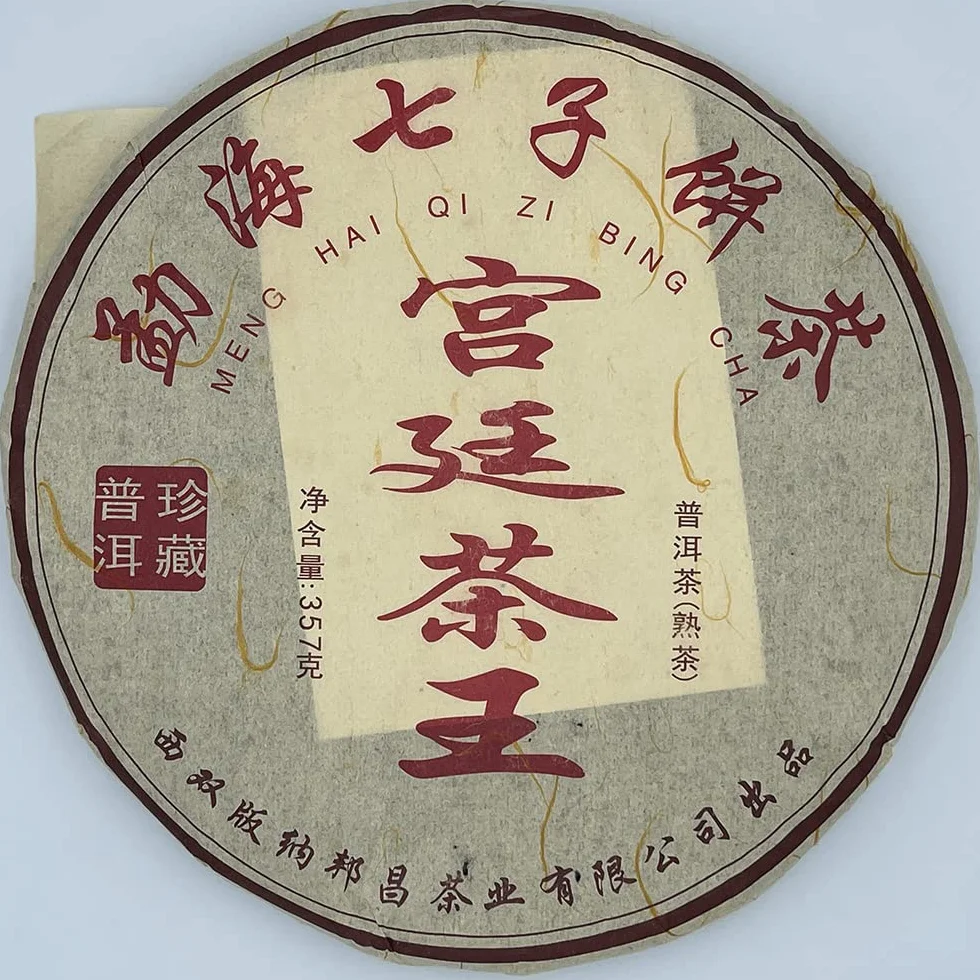 勐海七子饼茶
MENG HAI QI ZI BING CHA
宫廷茶王
珍藏
普洱
净含量:357克
普洱茶(熟茶)
西双版纳郑昌茶业有限公司出品